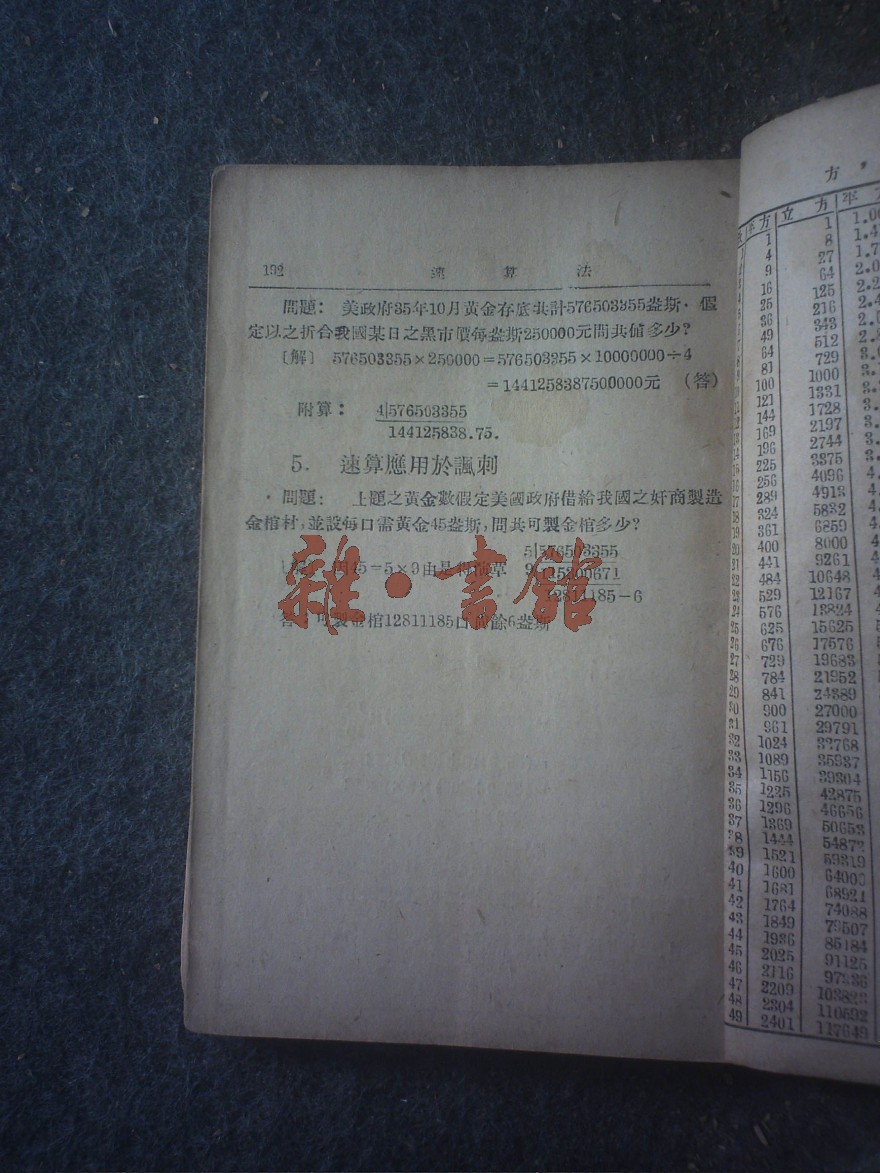 192 速算法
問題: 美政府35年10月黃金存底共計576503355盎斯·假
定以之折合我國某日之黑市價每盎斯250000元問共値多少?
〔解〕 576503355×250000=576503355×10000000÷4
=1441258387500000元 (答)
附算: 4|576503355
144125838.75.
5. 速算應用於諷刺
·問題: 上題之黃金數假定美國政府借給我國之奸商製造
金棺材,並設每口需黃金45盎斯,問共可製金棺多少?
5|576503355
45=5×9由是得演草 9|115300671
12811185-6
答:可製金棺12811185口 餘6盎斯
雜·書館
方
平方 立方 平
1 1 1.00
4 8 1.4
9 27 1.7
16 64 2.0
25 125 2.2
36 216 2.4
49 343
64 512
81 729
100 1000
121 1331
144 1728
169 2197
196 2744
225 3375
256 4096
289 4913
324 5832
361 6859
20 400 8000
21 441 9261
22 484 10648
23 529 12167
24 576 13824
25 625 15625
26 676 17576
27 729 19683
28 784 21952
29 841 24389
30 900 27000
31 961 29791
32 1024 32768
33 1089 35937
34 1156 39304
35 1225 42875
36 1296 46656
37 1369 50653
38 1444 54872
39 1521 59319
40 1600 64000
41 1681 68921
42 1764 74088
43 1849 79507
44 1936 85184
45 2025 91125
46 2116 97336
47 2209 103823
48 2304 110592
49 2401 117649